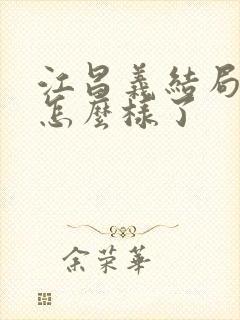 江昌義結局
怎麼樣了
余荣華